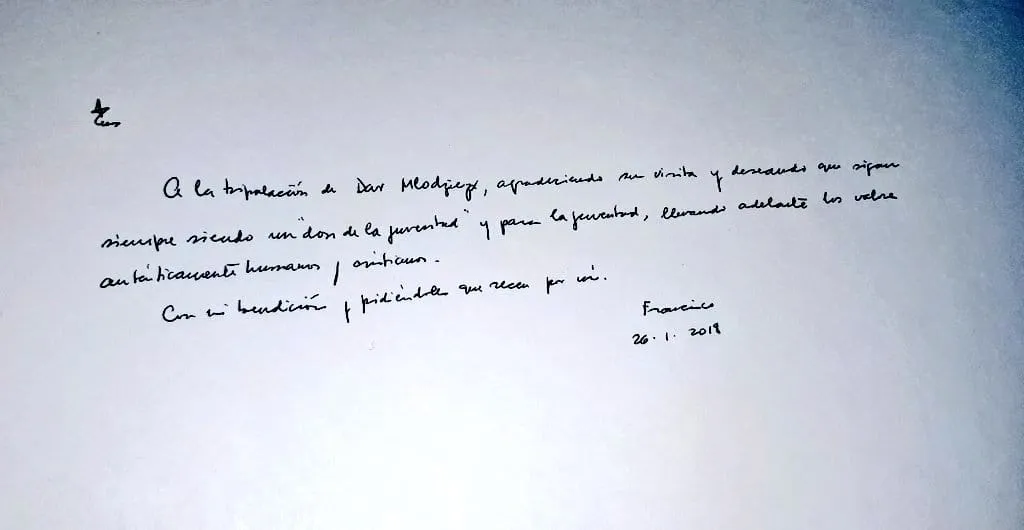 A la tripulación de Dar Mlodziezy, agradeciendo su visita y deseando que sigan
siempre siendo un "don de la juventud" y para la juventud, llevando adelante los valores
auténticamente humanos y cristianos.
Con mi bendición y pidiéndoles que recen por mí.
Francisco
26.1.2019